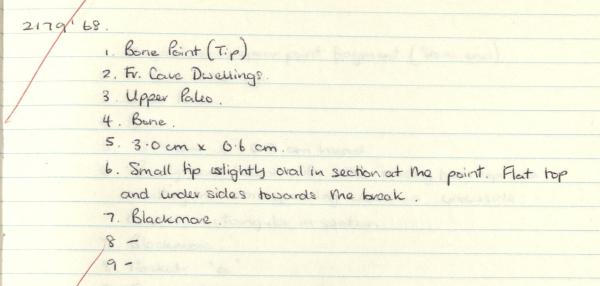 2179'68.
1. Bone Point (Tip)
2. Fr. Cave Dwellings.
3. Upper Paleo.
4. Bone.
5. 3.0 cm x 0.6 cm.
6. Small tip slightly oval in section at the point. Flat top
and under sides towards the break.
7. Blackmore.
8 -
9 -